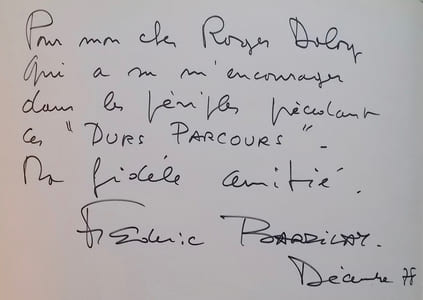 Pour mon cher Roger Daloy
Qui a su m'encourager
dans les périples précédant
ces "DURS PARCOURS".
Ma fidèle amitié.
Frédéric
Décembre 78